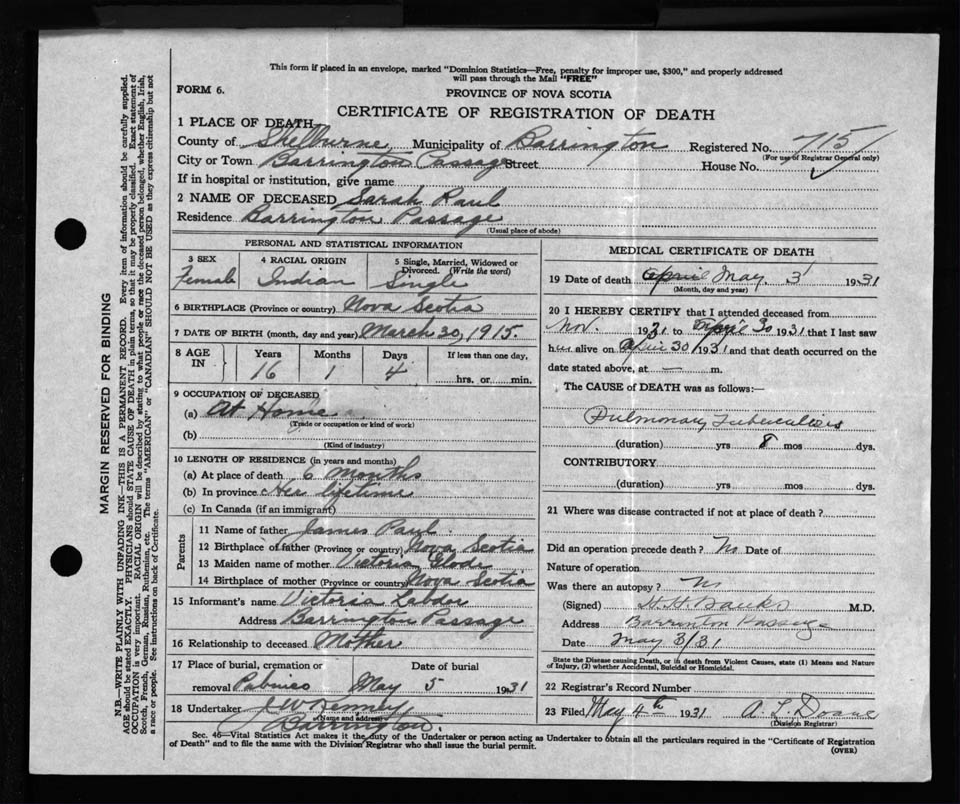 This form if placed in an envelope, marked "Dominion Statistics—Free, penalty for improper use, $300," and properly addressed
will pass through the Mail "FREE"
FORM 6.
PROVINCE OF NOVA SCOTIA
CERTIFICATE OF REGISTRATION OF DEATH
1 PLACE OF DEATH
County of Shelburne Municipality of Barrington Registered No. 715
(For use of Registrar General only)
City or Town Barrington Passage Street House No.
If in hospital or institution, give name
2 NAME OF DECEASED Sarah Paul
Residence Barrington Passage
(Usual place of abode)
PERSONAL AND STATISTICAL INFORMATION
3 SEX 4 RACIAL ORIGIN 5 Single, Married, Widowed or Divorced. (Write the word)
Female Indian Single
6 BIRTHPLACE (Province or country) Nova Scotia
7 DATE OF BIRTH (month, day and year) March 30, 1915.
8 AGE IN Years Months Days If less than one day,
16 1 4 hrs. or min.
9 OCCUPATION OF DECEASED
(a) At Home
(Trade or occupation or kind of work)
(b)
(Kind of industry)
10 LENGTH OF RESIDENCE (in years and months)
(a) At place of death 6 months
(b) In province Her lifetime
(c) In Canada (if an immigrant)
Parents
11 Name of father James Paul
12 Birthplace of father (Province or country) Nova Scotia
13 Maiden name of mother Victoria
14 Birthplace of mother (Province or country) Nova Scotia
15 Informant's name Victoria Labder
Address Barrington Passage
16 Relationship to deceased Mother
17 Place of burial, cremation or removal Date of burial
Pabnico May 5 1931
18 Undertaker
(Name and address)
Barrington
MEDICAL CERTIFICATE OF DEATH
19 Date of death April May 3 1931
(Month, day and year)
20 I HEREBY CERTIFY that I attended deceased from
Nov. 1931 to April 30 1931 that I last saw
her alive on April 30 1931 and that death occurred on the
date stated above, at — m.
The CAUSE of DEATH was as follows:—
Pulmonary Tuberculosis
(duration) yrs 8 mos dys.
CONTRIBUTORY
(duration) yrs mos dys.
21 Where was disease contracted if not at place of death?
Did an operation precede death? No Date of
Nature of operation
Was there an autopsy? No
(Signed) H. H. Banks M.D.
Address Barrinton Passage
Date May 3/31
State the Disease causing Death, or in death from Violent Causes, state (1) Means and Nature
of Injury, (2) whether Accidental, Suicidal or Homicidal.
22 Registrar's Record Number
23 Filed May 4th 1931 A. L. Doane
(Division Registrar)
Sec. 46—Vital Statistics Act makes it the duty of the Undertaker or person acting as Undertaker to obtain all the particulars required in the "Certificate of Registration
of Death" and to file the same with the Division Registrar who shall issue the burial permit.
(OVER)
MARGIN RESERVED FOR BINDING
N.B.—WRITE PLAINLY WITH UNFADING INK—THIS IS A PERMANENT RECORD. Every item of information should be carefully supplied.
AGE should be stated EXACTLY. PHYSICIANS should STATE CAUSE OF DEATH in plain terms, so that it may be properly classified. Exact statement of
OCCUPATION is very important. RACIAL ORIGIN will be described by stating to what people or race the deceased person belonged, whether English, Irish,
Scotch, French, German, Russian, Ruthenian, etc. The terms "AMERICAN" or "CANADIAN" SHOULD NOT BE USED as they express citizenship but not
a race or people. See instructions on back of Certificate.